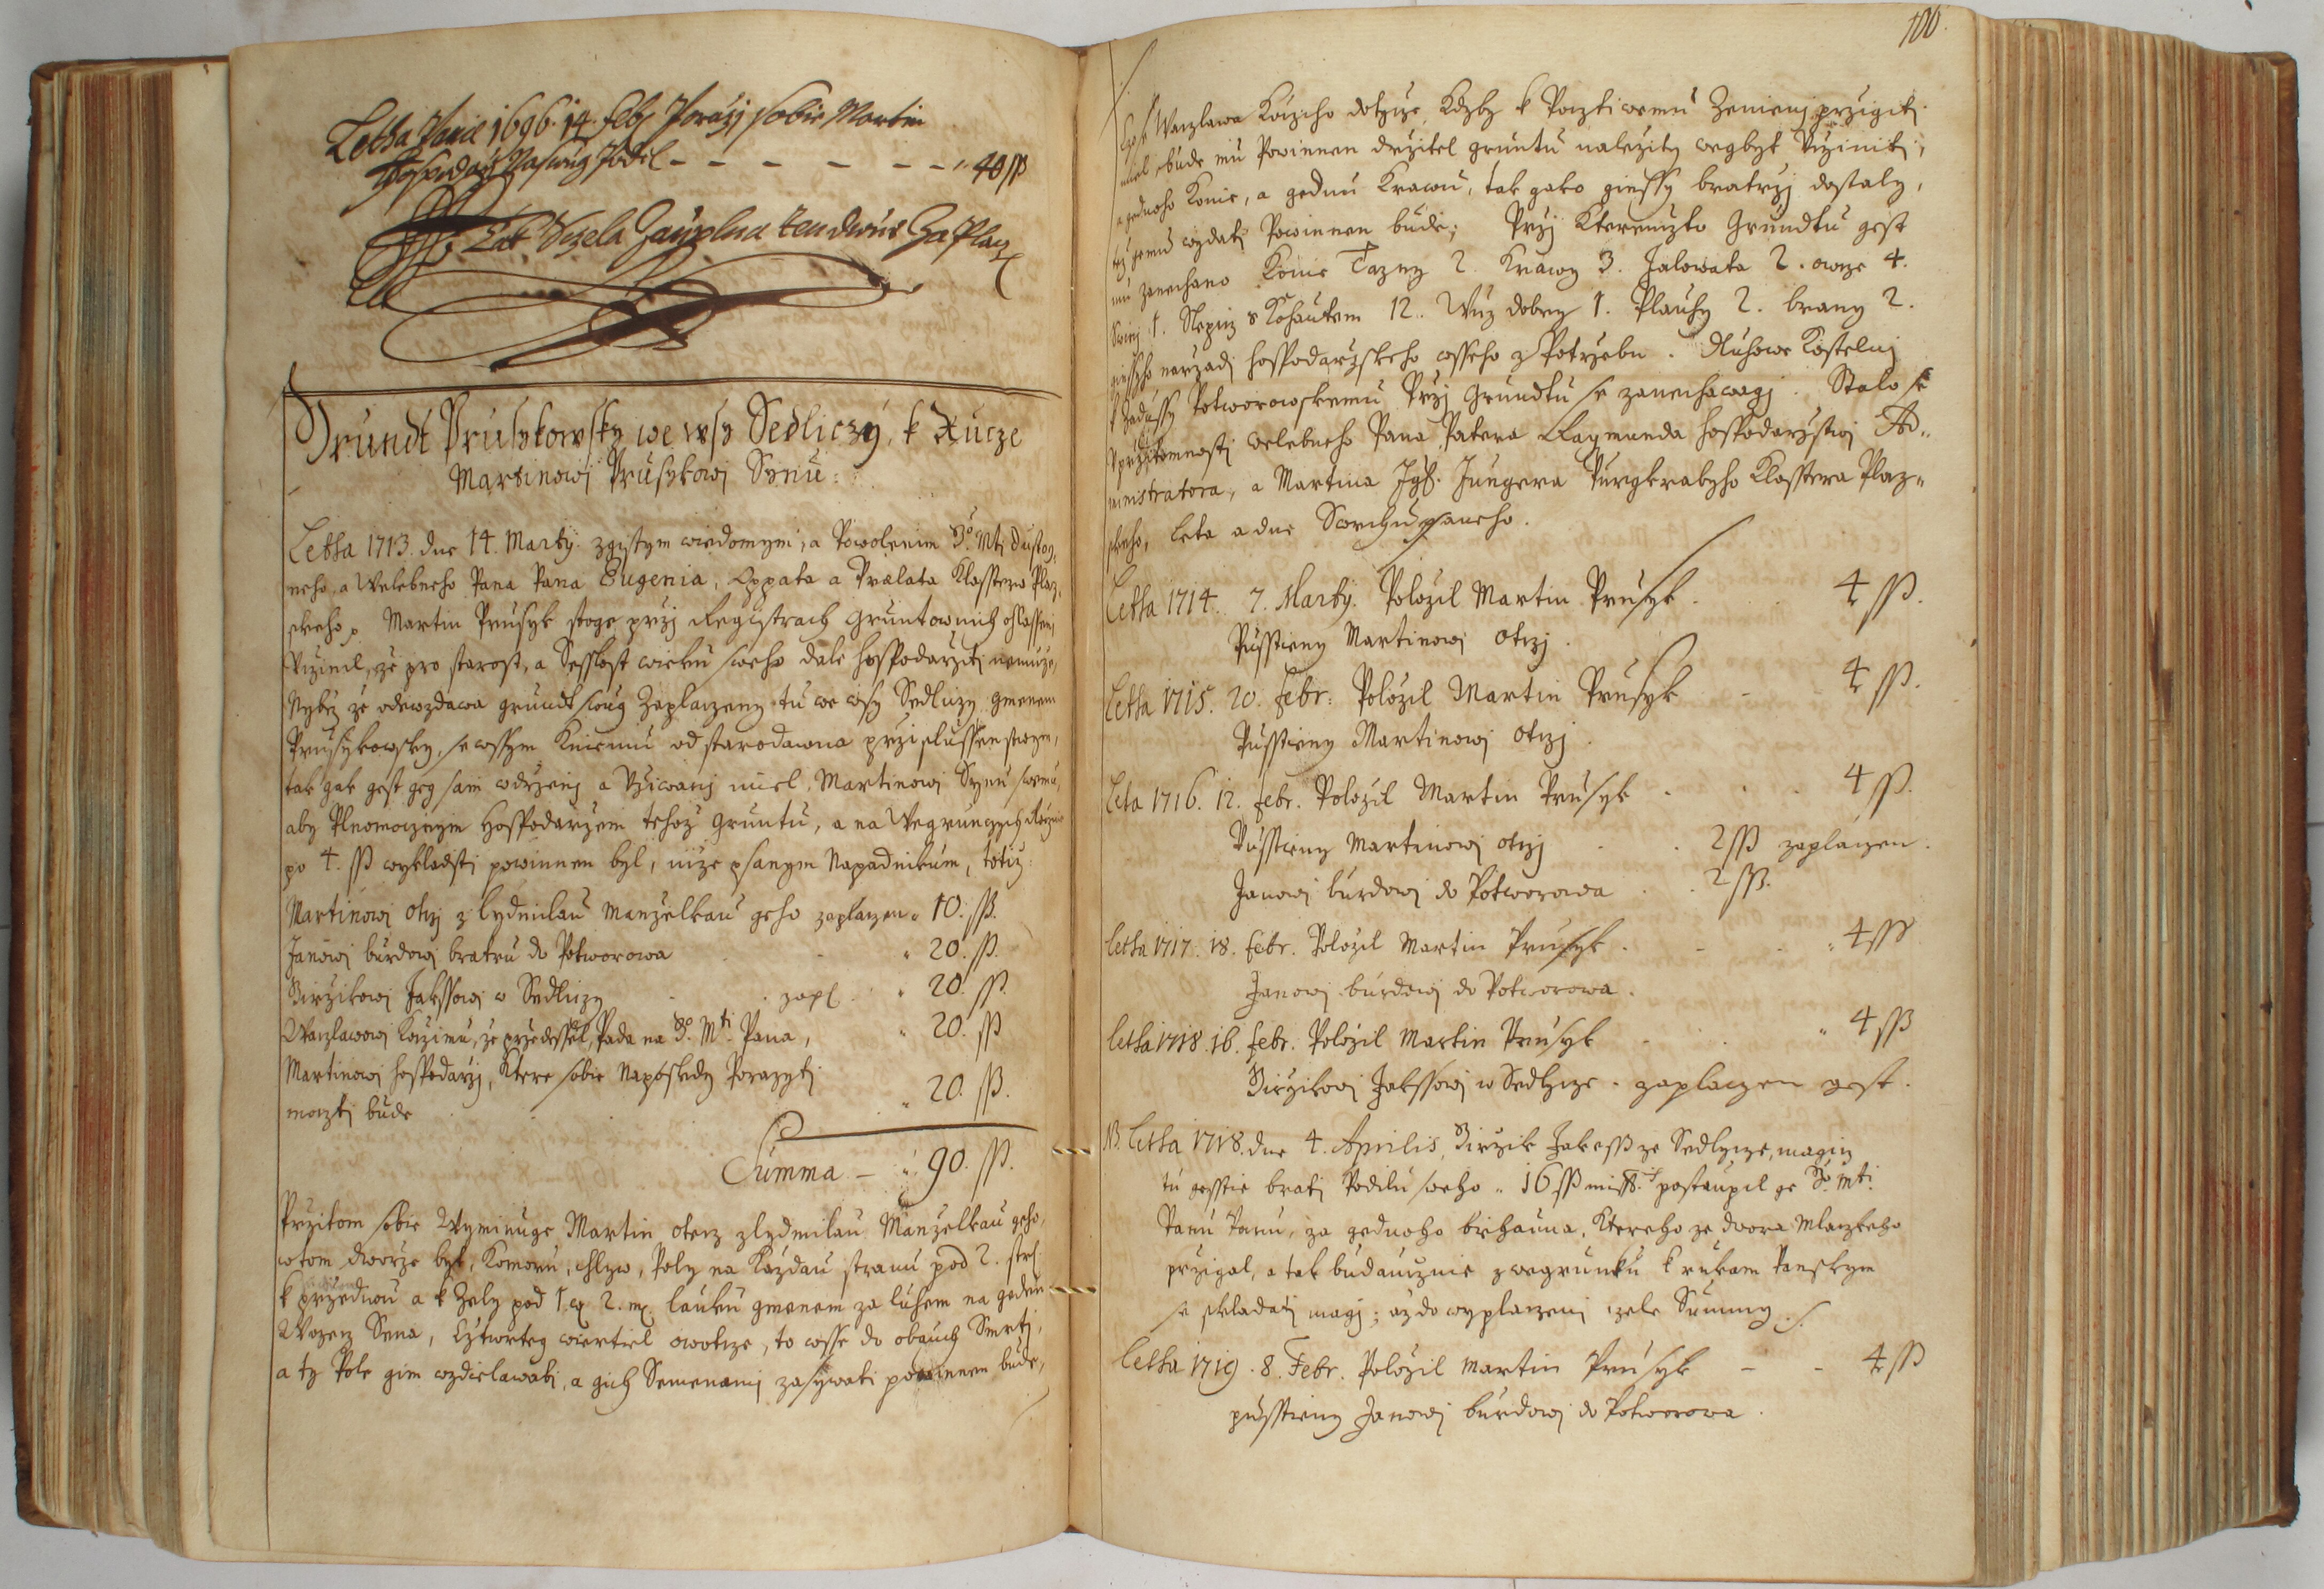 Letha Panie 1696. 14. Feb. Porazj sobie Martin
Hospodarz Naswug Podil - - - - - - - " 40 sß
Tak Czela Zauplna ten dwur Zaplaz
Grundt Prusykowsky we wsy Sedliczy, k Rucze
Martinowj Prusykowj Synu:
Letha 1713. dne 14. Marty. zgistym wiedomym, a Powolenim Jo. Mti Dustog-
neho, a Welebneho Pana Pana Eugenia, Oppata a Praelata Klasstera Plaz-
skeho, Martin Prusyk stoge przj Registrach Gruntownich ohlassenj
Uczinil, ze pro starost, a Sesslost wieku sweho dale hospodarziti nemuze,
Nybrz ze odewzdawa grundt swug Zaplaczeny tu we wsy Sedliczy gmenem
Prusykowsky, se wssym k niemu od starodawna przislussenstwym,
tak gak gest geg sam wdrzenj a Uziwanj miel, Martinowj Synu swemu,
aby Plnomocznym Hospodarzem tehoz Gruntu, a na Wegrunczych Roczne
po 4. sß wykladati powinnen byl, nize psanym Napadnikum, totiz:
Martinowj otczj z Lydmilau Manzelkau geho zaplaczen " 10. sß.
Janowj burdowj bratru do Potworowa " 20. sß.
Jirzikowj Jakssowj w Sedliczy . zapl. " 20. sß.
Waczlawowj Koczimu, ze przedessel, Pada na Jo. Mti. Pana, " 20. sß
Martinowj hospodarzj, Ktere sobie Naposledy Porazyti
moczti bude " 20. sß.
Summa - " 90. sß.
Przitom sobie Wyminuge Martin otecz z Lydmilau Manzelkau geho,
w tom dworze byt, Komoru, chlyw, Poly na Kazdau stranu pod 2. str.
k przednou a k Zely pod 1. a 2. m. lauku gmenem za luhem na geden
Wozecz Sena, Cztwrteg wiertel owotcze, to wsse do obauch Smrti,
a ty Pole gim wzdielawati, a gich Semenamj zasywati powinnen bude,
100.
Waczlawa Kocziho dotycze, Kdyby k Pocztiwemu Zenienj przigiti
miel, bude mu Powinnen drzitel gruntu nalezity wegbyt Ucziniti,
a gednoho Konie, a gednu Krawu, tak gako ginssy bratrzj dostaly,
tez gemu wydati Powinnen bude; Przj Kteremzto Grundtu gest
mu zanechano Konie Tazny 2. Krawy 3. Jalowata 2. owcze 4.
Swinj 1. Slepicz s Kohautem 12. Wuz dobry 1. Pluhy 2. brany 2.
ginssyho narzadj hospodarzskeho wsseho z Potrzebu. Dluhowe Kostelnj
k Zadussy Potworowskemu Przj Grundtu se zanechawagj. Stalo se
Uprzitomnosti welebneho Pana Patera Raymunda hospodarzstwj Ad-
ministratora, a Martina Jgß. Jungera Purgkrabyho Klasstera Plaz-
skeho, Leta a dne Swrchupsaneho.
Letha 1714. 7. Marty. Polozil Martin Prusyk . 4 sß.
Pusstieny Martinowj otczj.
Letha 1715. 20. Febr: Polozil Martin Prusyk - 4 sß.
Pusstieny Martinowj otczj.
Leta 1716. 12. Febr. Polozil Martin Prusyk . 4 sß.
Pusstieny Martinowj otczj . 2 sß zaplaczen.
Janowj burdowj do Potworowa . 2 sß.
Letha 1717. 18. Febr. Polozil Martin Prusyk . " 4 sß
Janowj burdowj do Potworowa.
Letha 1718. 16. Febr. Polozil Martin Prusyk " 4 sß
Jirzikowj Jakssowj w Sedlycze. zaplaczen gest.
NB. Letha 1718. dne 4. Aprilis, Jirzik Jakess ze Sedlycze, magicz
tu gesstie brati Podilu sweho " 16 sß miß. postaupil ge Jo. Mti.
Panu Panu, za gednoho brhauna, Ktereho ze dwora Mlaczkeho
przigal, a tak budauczne z wegrunku k rukam Panskym
se skladati magj; az do wyplaczenj czele Summy.
Letha 1719. 8. Febr. Polozil Martin Prusyk - - 4 sß
pusstieny Janowj burdowj do Potworowa.